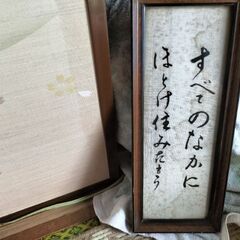 すべてのなかに
ほとけ住みたまう